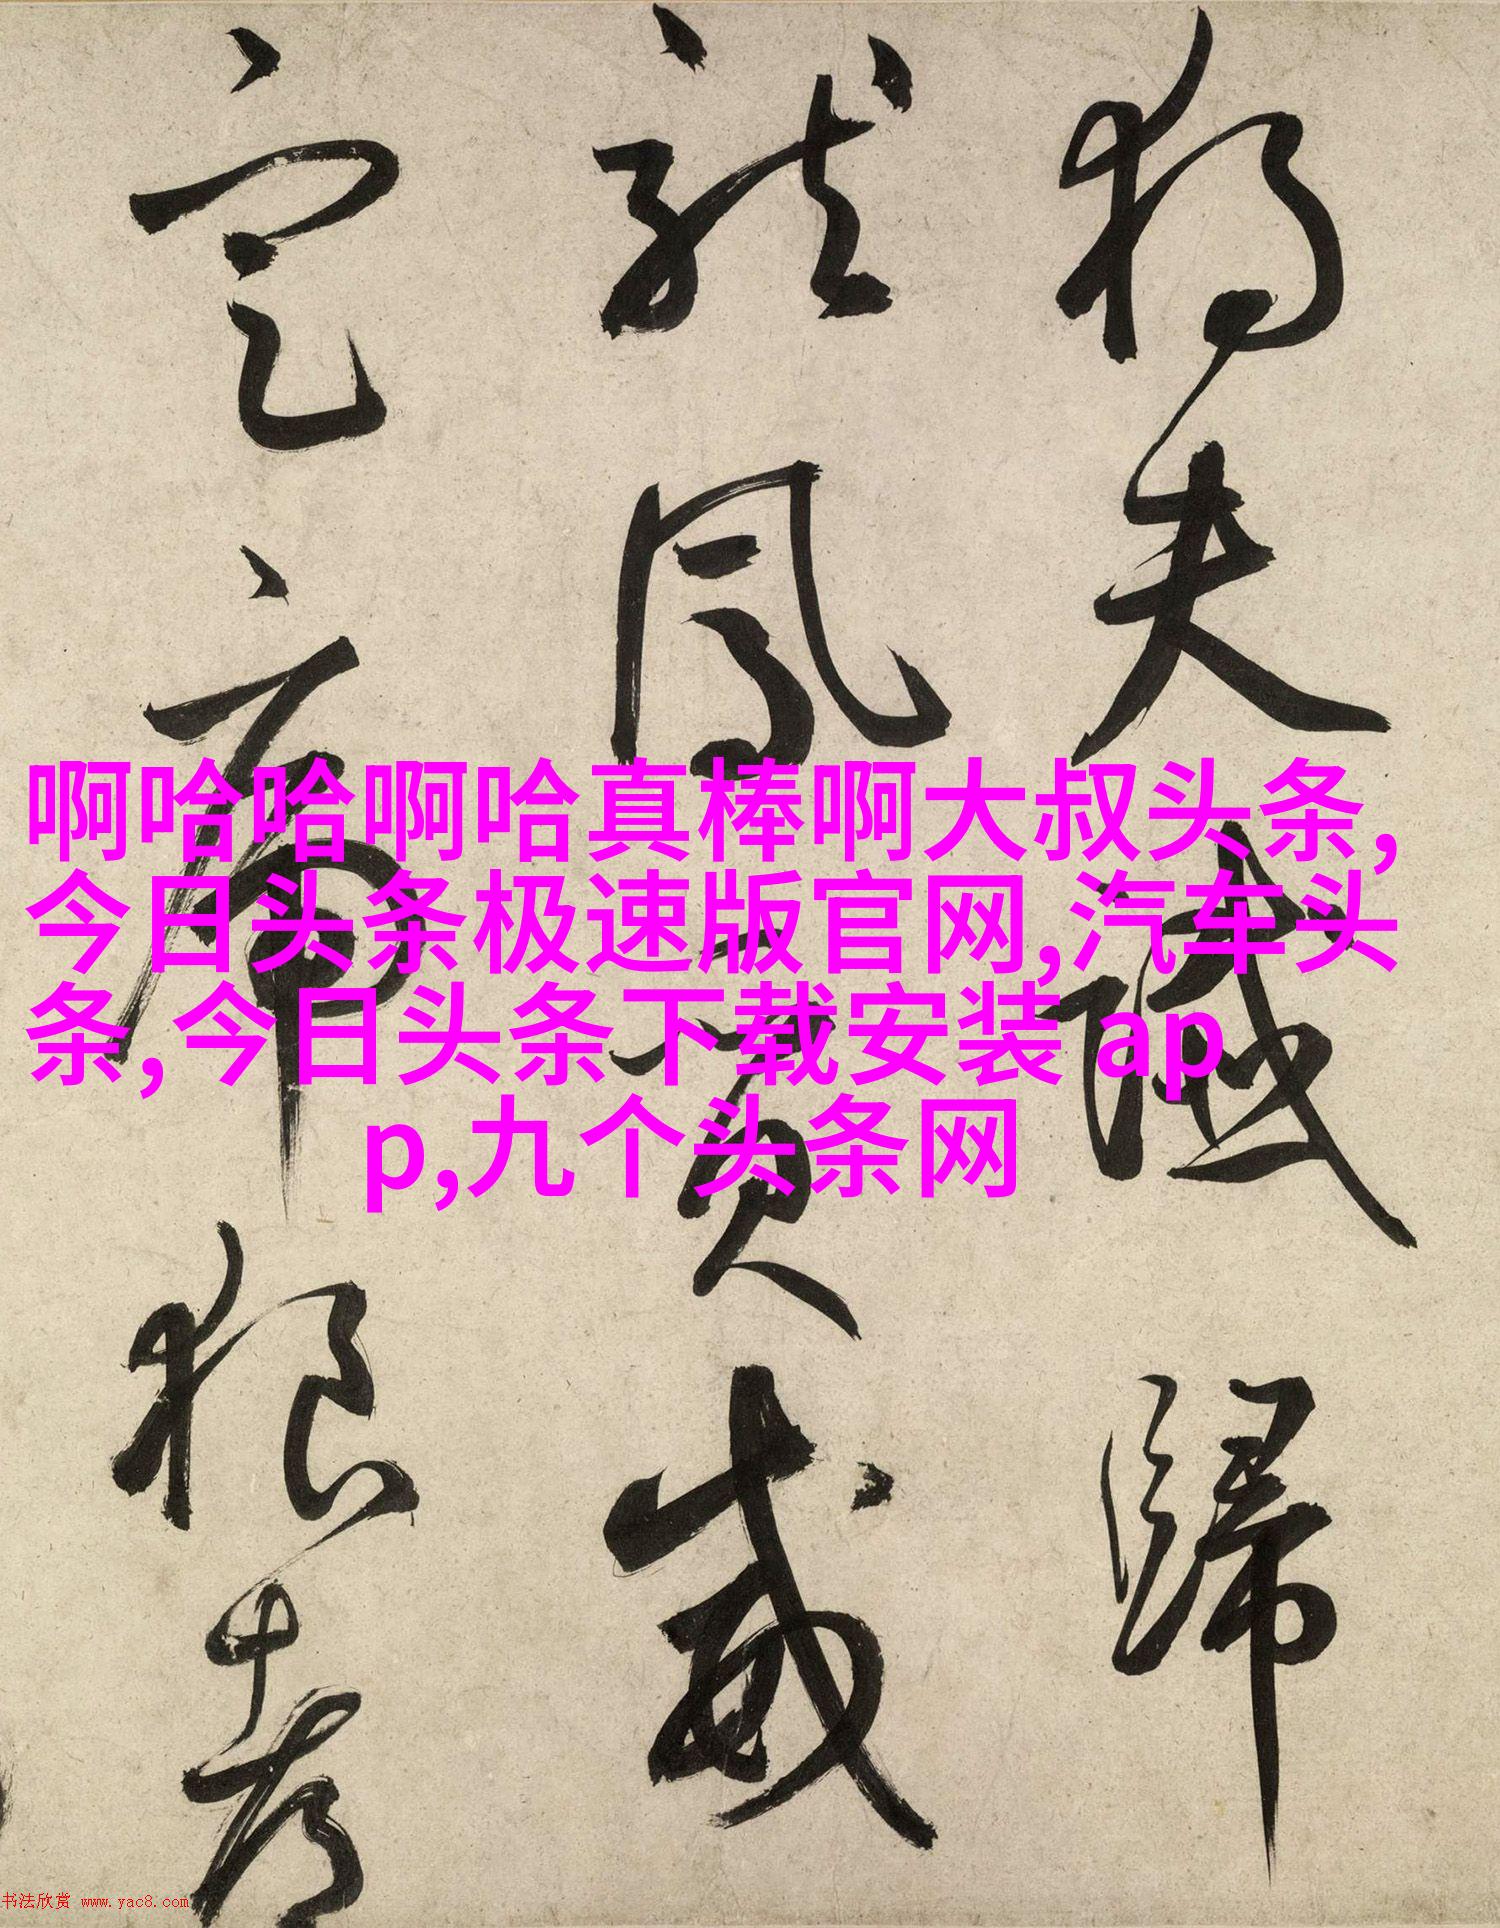 夫 歸
龍鳳 威
定 狼
啊哈哈啊哈真棒啊大叔头条,
今日头条极速版官网,汽车头
条,今日头条下载安装 ap
p,九个头条网
书法欣赏 www.yac8.com